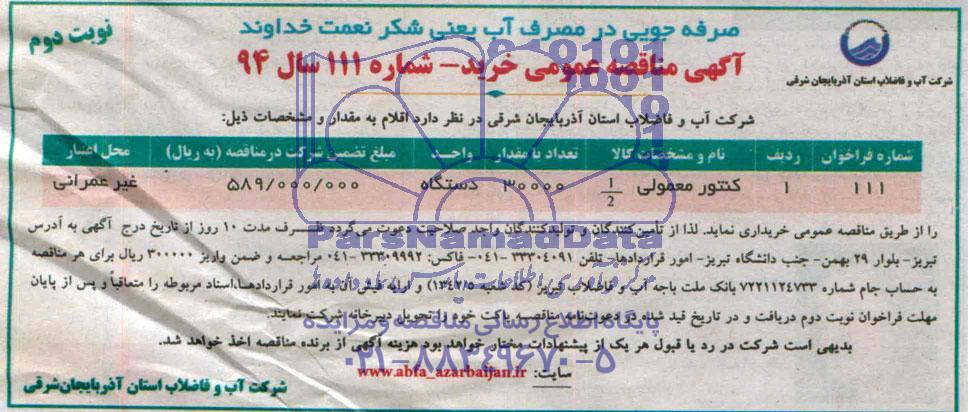 صرفه جویی در مصرف آب یعنی شکر نعمت خداوند
نوبت دوم
آگهی مناقصه عمومی خرید- شماره ۱۱۱ سال ۹۴
شرکت آب و فاضلاب استان آذربایجان شرقی
شرکت آب و فاضلاب استان آذربایجان شرقی در نظر دارد اقلام به مقدار و مشخصات ذیل:
شماره فراخوان ردیف نام و مشخصات کالا تعداد یا مقدار واحد مبلغ تضمین شرکت در مناقصه (به ریال) محل اعتبار
۱۱۱ ۱ کنتور معمولی 1/2 ۳۰۰۰۰ دستگاه ۵۸۹/۰۰۰/۰۰۰ غیر عمرانی
را از طریق مناقصه عمومی خریداری نماید. لذا از تأمین‌کنندگان و تولیدکنندگان واجد صلاحیت دعوت می‌گردد ظرف مدت ۱۰ روز از تاریخ درج آگهی به آدرس
تبریز- بلوار ۲۹ بهمن- جنب دانشگاه تبریز- امور قراردادها- تلفن ۳۳۳۰۴۰۹۱-۰۴۱- فاکس: ۳۳۳۰۹۹۹۲-۰۴۱ مراجعه و ضمن واریز ۳۰۰۰۰۰ ریال برای هر مناقصه
به حساب جام شماره ۷۲۲۱۱۲۴۷۳۳ بانک ملت باجه آب و فاضلاب تبریز (کد شعبه ۱۳۴۲/۵) و ارایه فیش آن به امور قراردادها، اسناد مربوطه را متعاقباً و پس از پایان
مهلت فراخوان نوبت دوم دریافت و در تاریخ قید شده در دعوت‌نامه مناقصه پاکت خود را تحویل دبیرخانه شرکت نمایند.
بدیهی است شرکت در رد یا قبول هر یک از پیشنهادات مختار خواهد بود هزینه آگهی از برنده مناقصه اخذ خواهد شد.
سایت: www.abfa_azarbaijan.ir
شرکت آب و فاضلاب استان آذربایجان‌شرقی
ParsNamadData
پایگاه اطلاع رسانی مناقصه و مزایده
۰۲۱-۸۸۳۴۹۶۷۰-۵